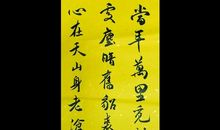 當年萬里覓
處塵暗舊貂裘
心在天山身老滄